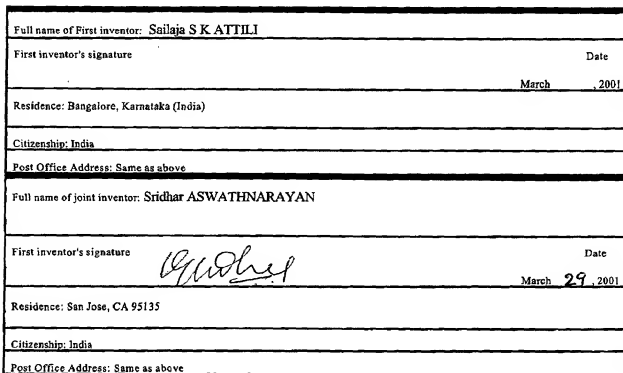 Full name of First inventor: Sailaja S K ATTILI
First inventor's signature Date
March , 2001
Residence: Bangalore, Karnataka (India)
Citizenship: India
Post Office Address: Same as above
Full name of joint inventor: Sridhar ASWATHNARAYAN
First inventor's signature Date
March 29, 2001
Residence: San Jose, CA 95135
Citizenship: India
Post Office Address: Same as above